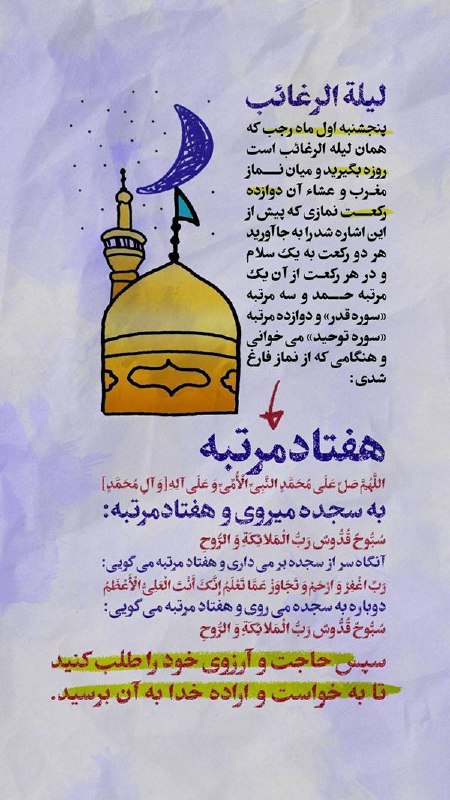 لیلة الرغائب
پنجشنبه اول ماه رجب که
همان لیله الرغائب است
روزه بگیرید و میان نماز
مغرب و عشاء آن دوازده
رکعت نمازی که پیش از
این اشاره شد را به جا آورید
هر دو رکعت به یک سلام
و در هر رکعت از آن یک
مرتبه حمد و سه مرتبه
«سوره قدر» و دوازده مرتبه
«سوره توحید» می خوانی
و هنگامی که از نماز فارغ
شدی:
هفتاد مرتبه
اللَّهُمَّ صَلِّ عَلَى مُحَمَّدٍ النَّبِيِّ الْأُمِّيِّ وَ عَلَى آلِهِ [وَ آلِ مُحَمَّدٍ]
به سجده میروی و هفتاد مرتبه:
سُبُّوحٌ قُدُّوسٌ رَبُّ الْمَلائِكَةِ وَ الرُّوحِ
آنگاه سر از سجده بر می داری و هفتاد مرتبه می گویی:
رَبِّ اغْفِرْ وَ ارْحَمْ وَ تَجَاوَزْ عَمَّا تَعْلَمُ إِنَّكَ أَنْتَ الْعَلِيُّ الْأَعْظَمُ
دوباره به سجده می روی و هفتاد مرتبه می گویی:
سُبُّوحٌ قُدُّوسٌ رَبُّ الْمَلائِكَةِ وَ الرُّوحِ
سپس حاجت و آرزوی خود را طلب کنید
تا به خواست و اراده خدا به آن برسید.